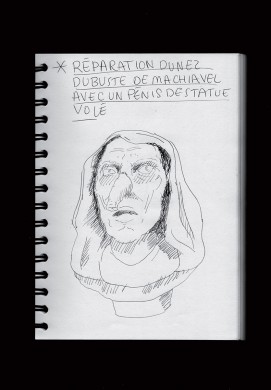 * RÉPARATION DUNEZ
DUBUSTE DE MACHIAVEL
AVEC UN PÉNIS DE STATUE
VOLÉ